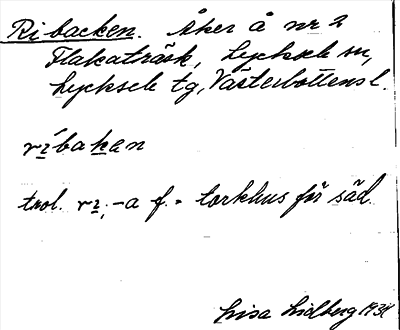 Ribacken. Åker å nr 2
Flakaträsk, Lycksele sn,
Lycksele tg, Västerbottens l.
ríbaḵan
trol. ri, -a f. = torkhus för säd.
Lisa Lidberg 1934